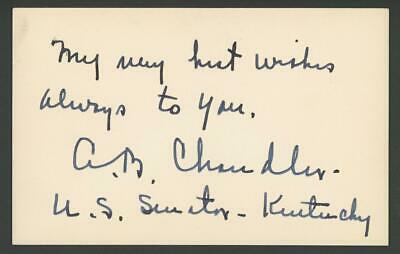 My very best wishes
always to you.
A.B. Chandler-
U.S. Senator- Kentucky